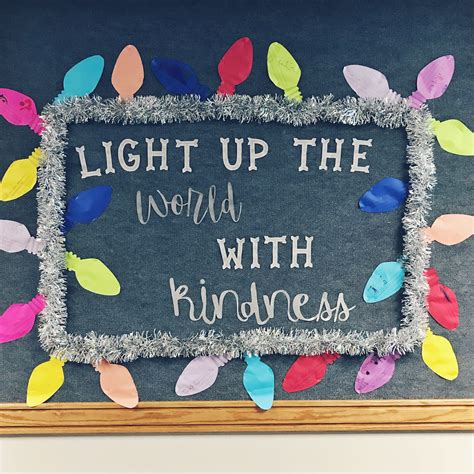 LIGHT UP THE
World
WITH
Kindness